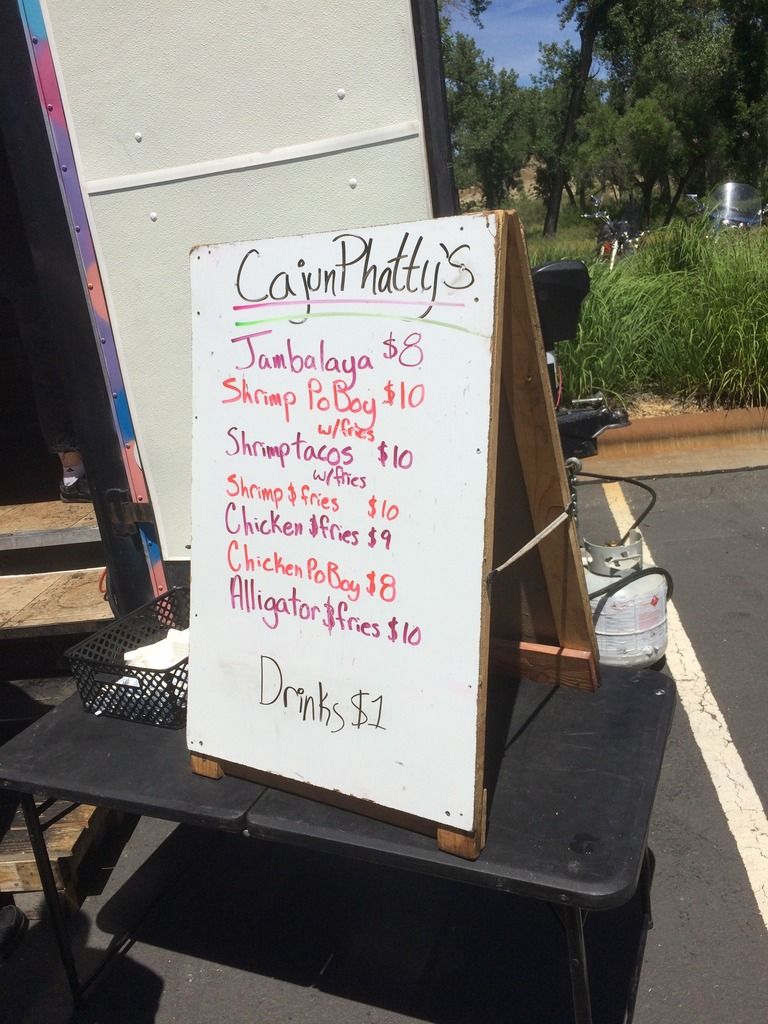 CajunPhatty's
Jambalaya $8
Shrimp PoBoy $10
w/fries
Shrimp tacos $10
w/fries
Shrimp $ fries $10
Chicken $ fries $9
Chicken PoBoy $8
Alligator $ fries $10
Drinks $1